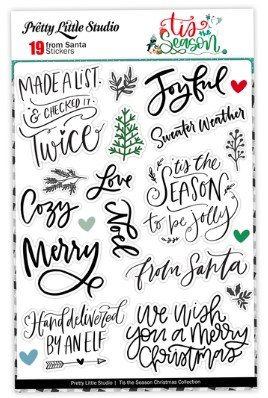 Pretty Little Studio
19 from Santa
Stickers
'tis
the
Season
MADE A LIST
& CHECKED IT
Twice
Joyful
Sweater Weather
Cozy
Love
Noel
'tis the
SEASON
to be jolly
Merry
from Santa
Hand delivered
BY AN ELF
we wish
you a merry
Christmas
Pretty Little Studio | Tis the Season Christmas Collection